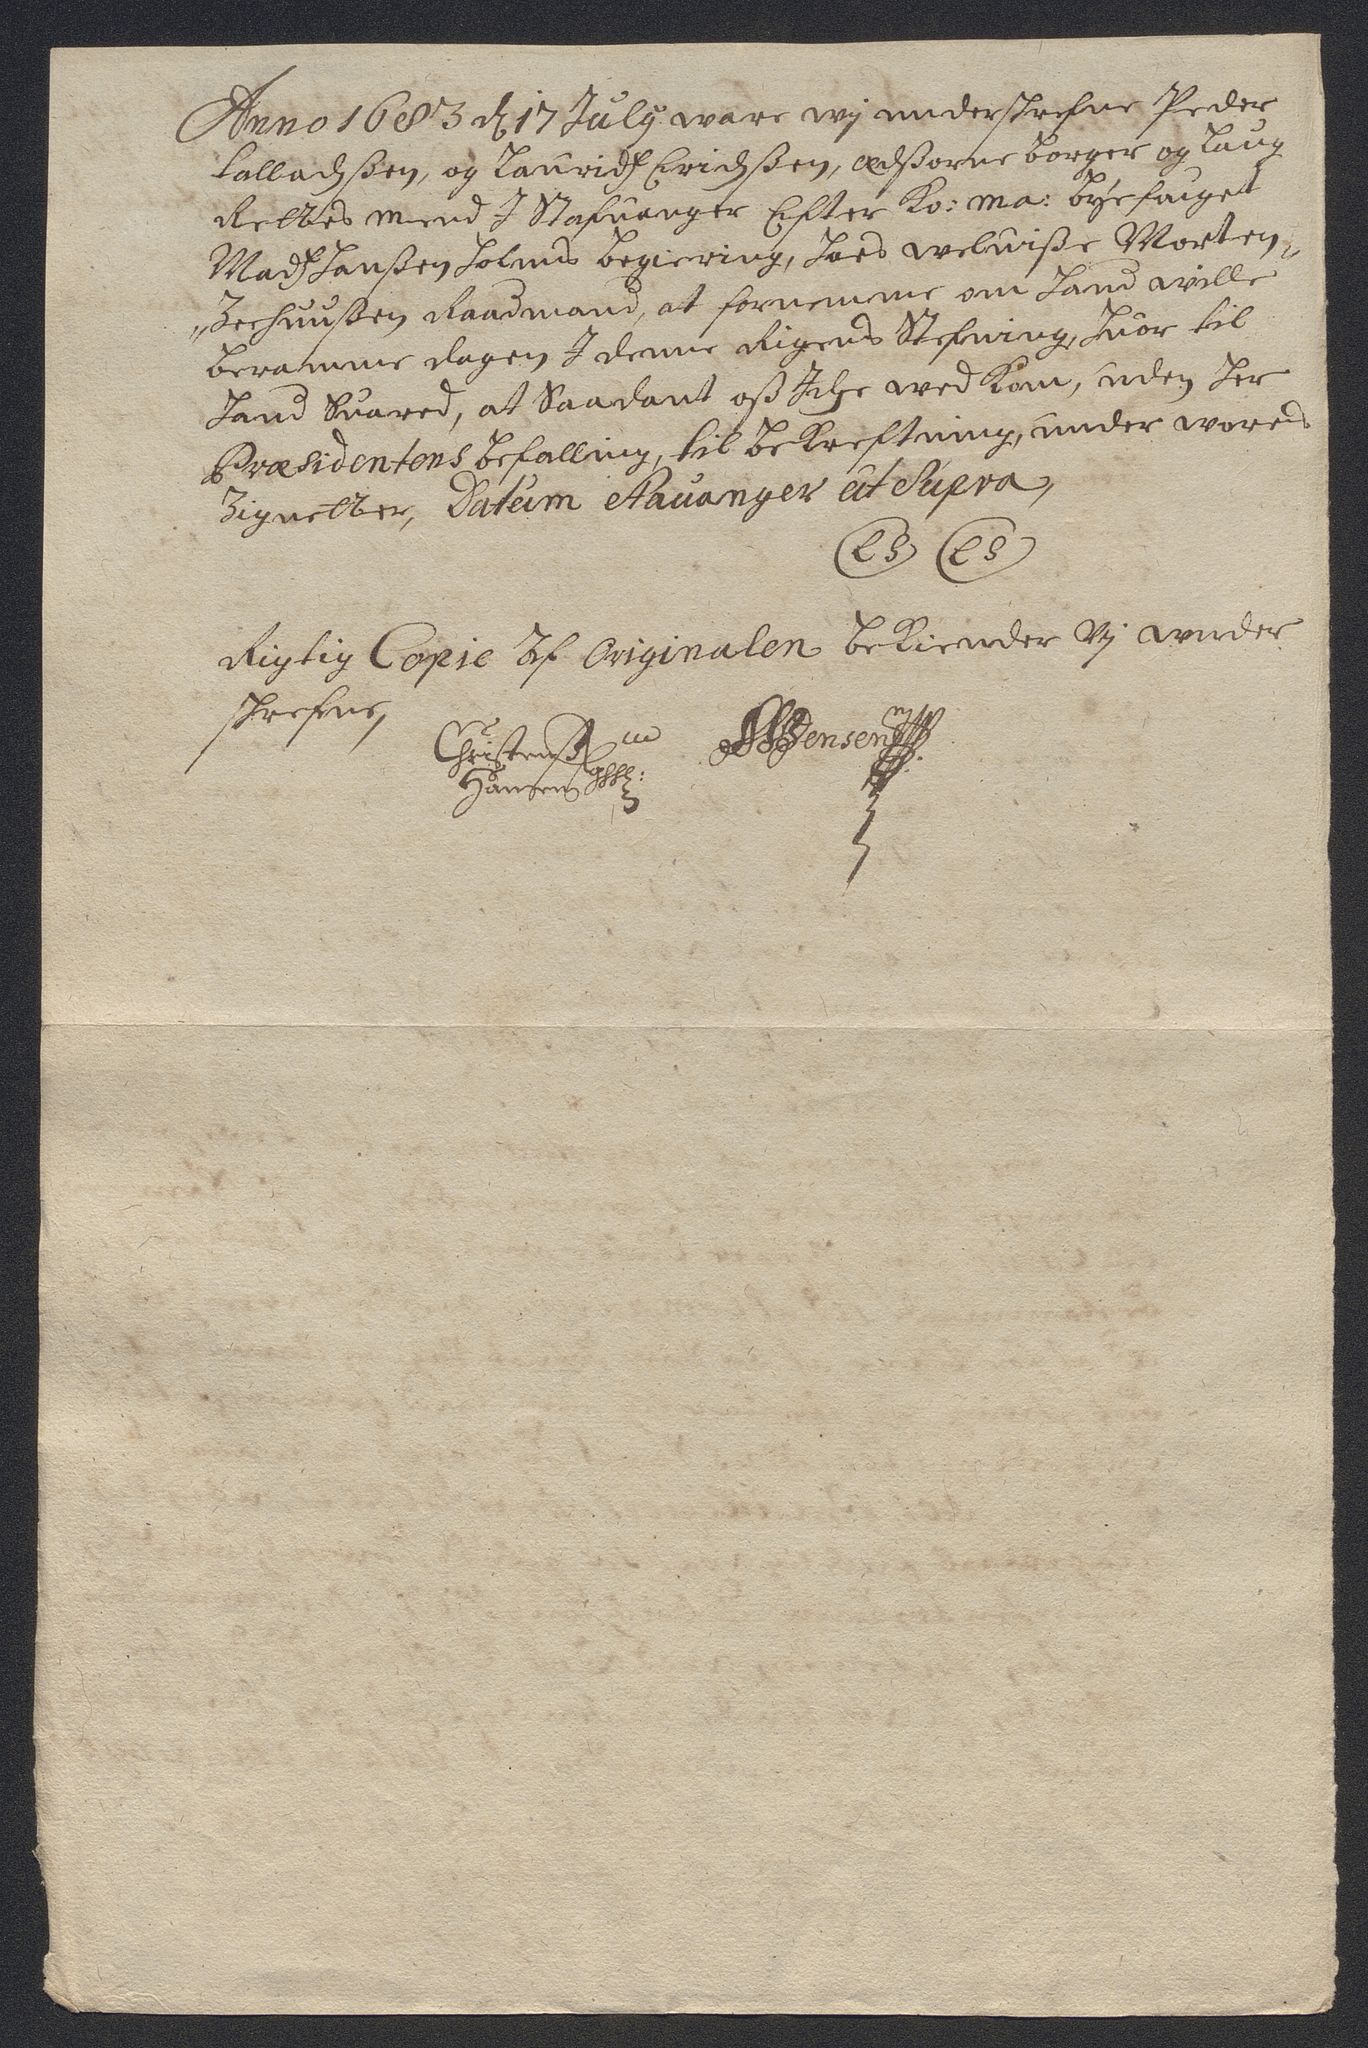 Anno 1683 d 17 July ware wij underschrefne Peder
Calladsßen, og Lauridz Erichsßen, Edßorne borger og Laug
Rettes mend J Stafuanger Efter Ko: Ma: byefoiget
Madz Hanßen Holms begiering, hoes welwiße Morten
Zeehuußen Raadmand, at fornemme om hand wille
beramme dagen J denne Rigens Stefning, huor til
hand Suared, at Saadant oß Iche wed kom, uden her
Præsidentens befalling, til bekreftning, under worris
Zignetter, Datum Stauanger ut Supra,
LS LS
Rigtig Copie Af Originalen bekiender Vj under
schrefne,
Christen Jensen
Hansen